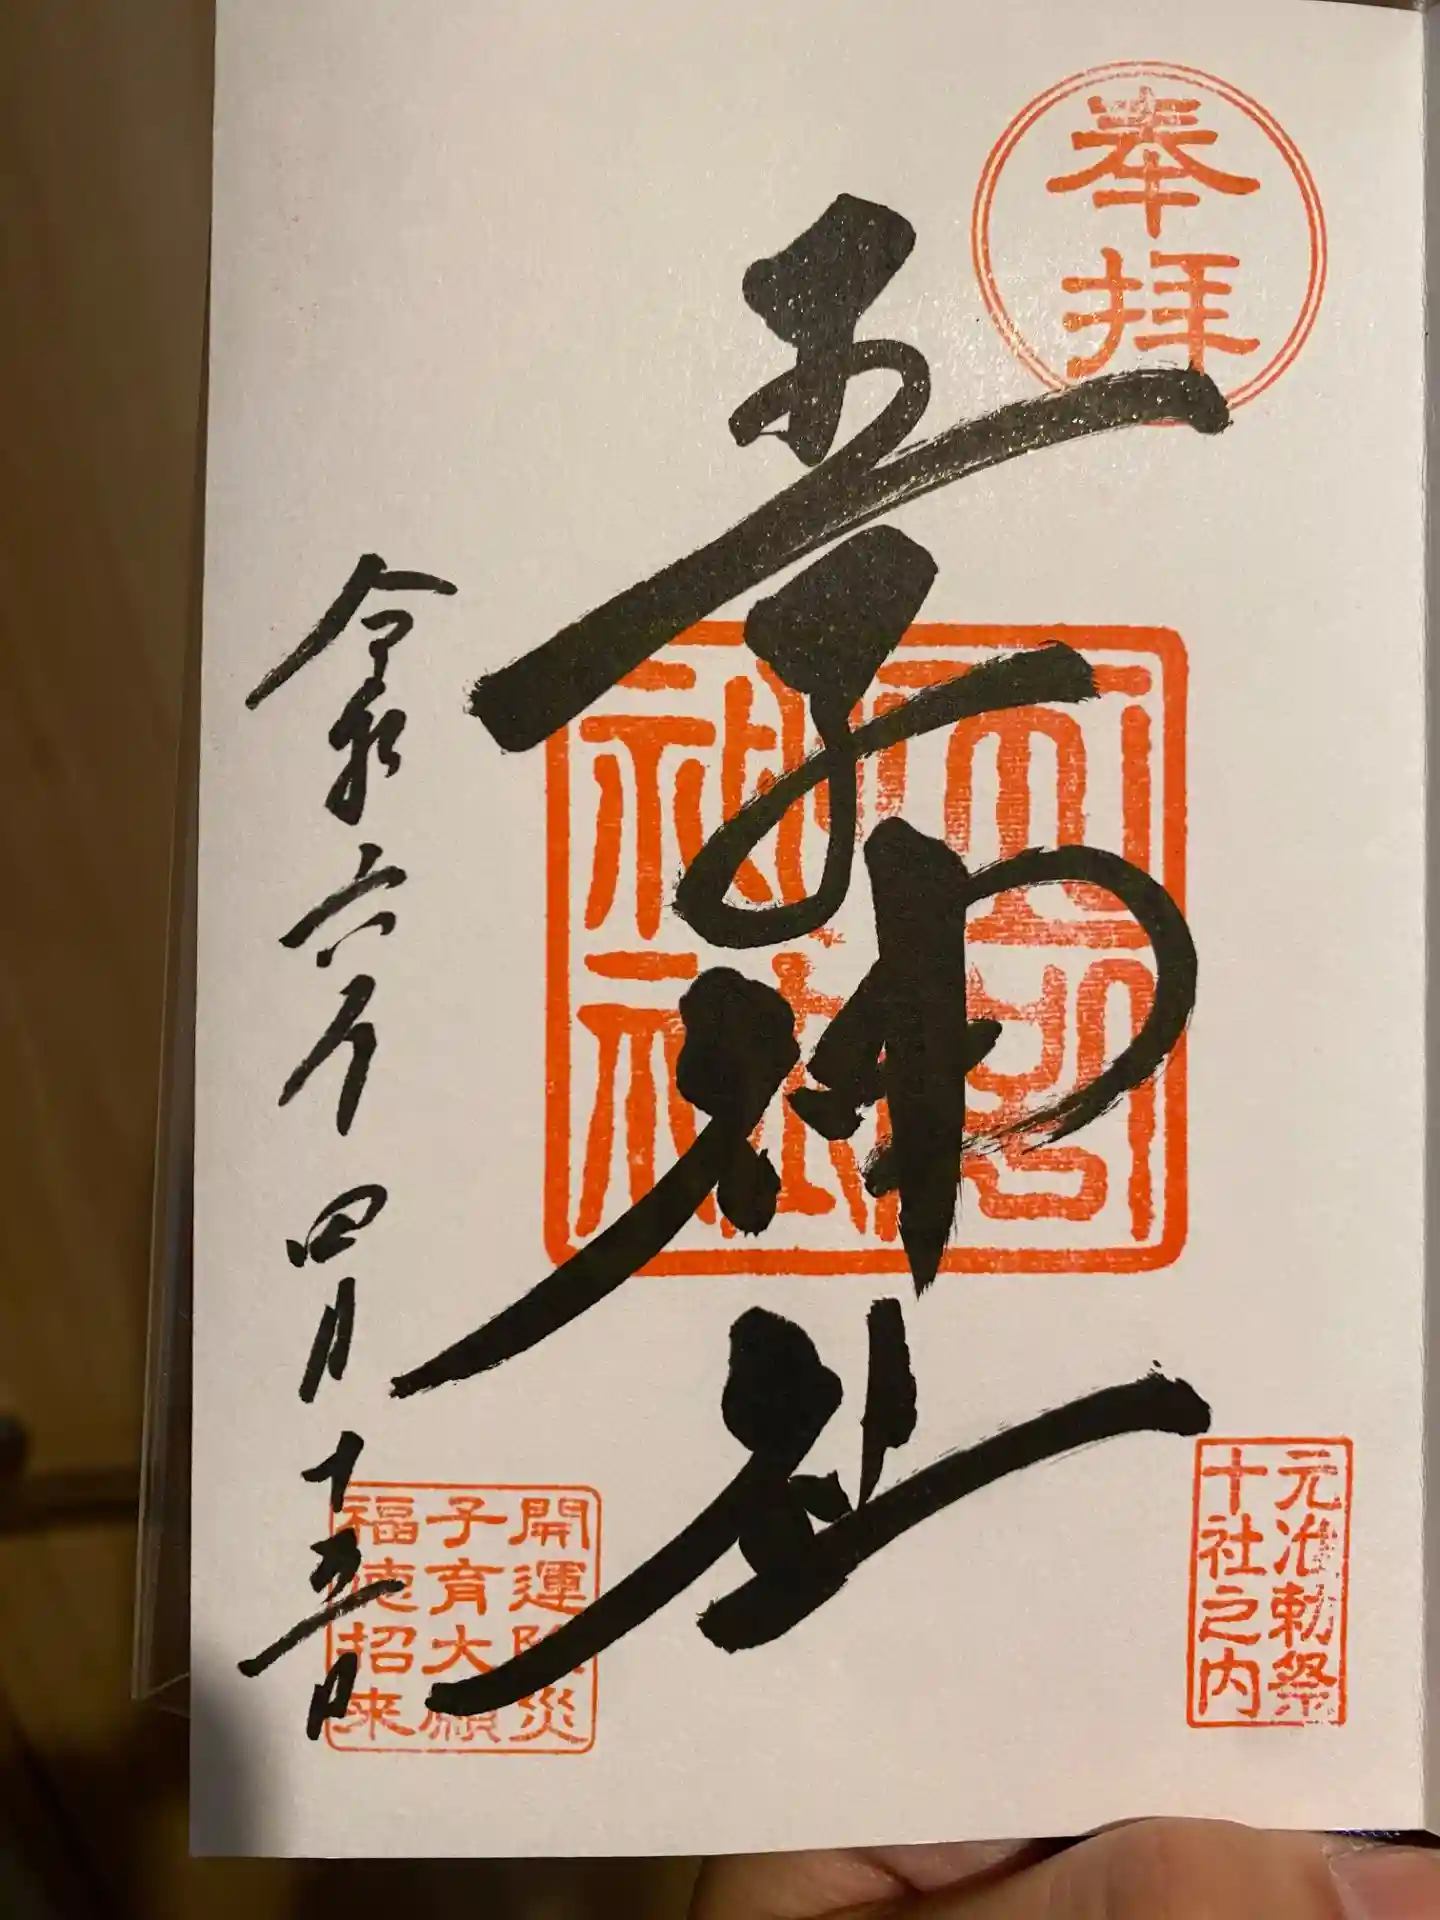 奉拝
神社
元治勅祭
十社之内
令和六年四月十五日
開運除災
子育大願
福徳招来